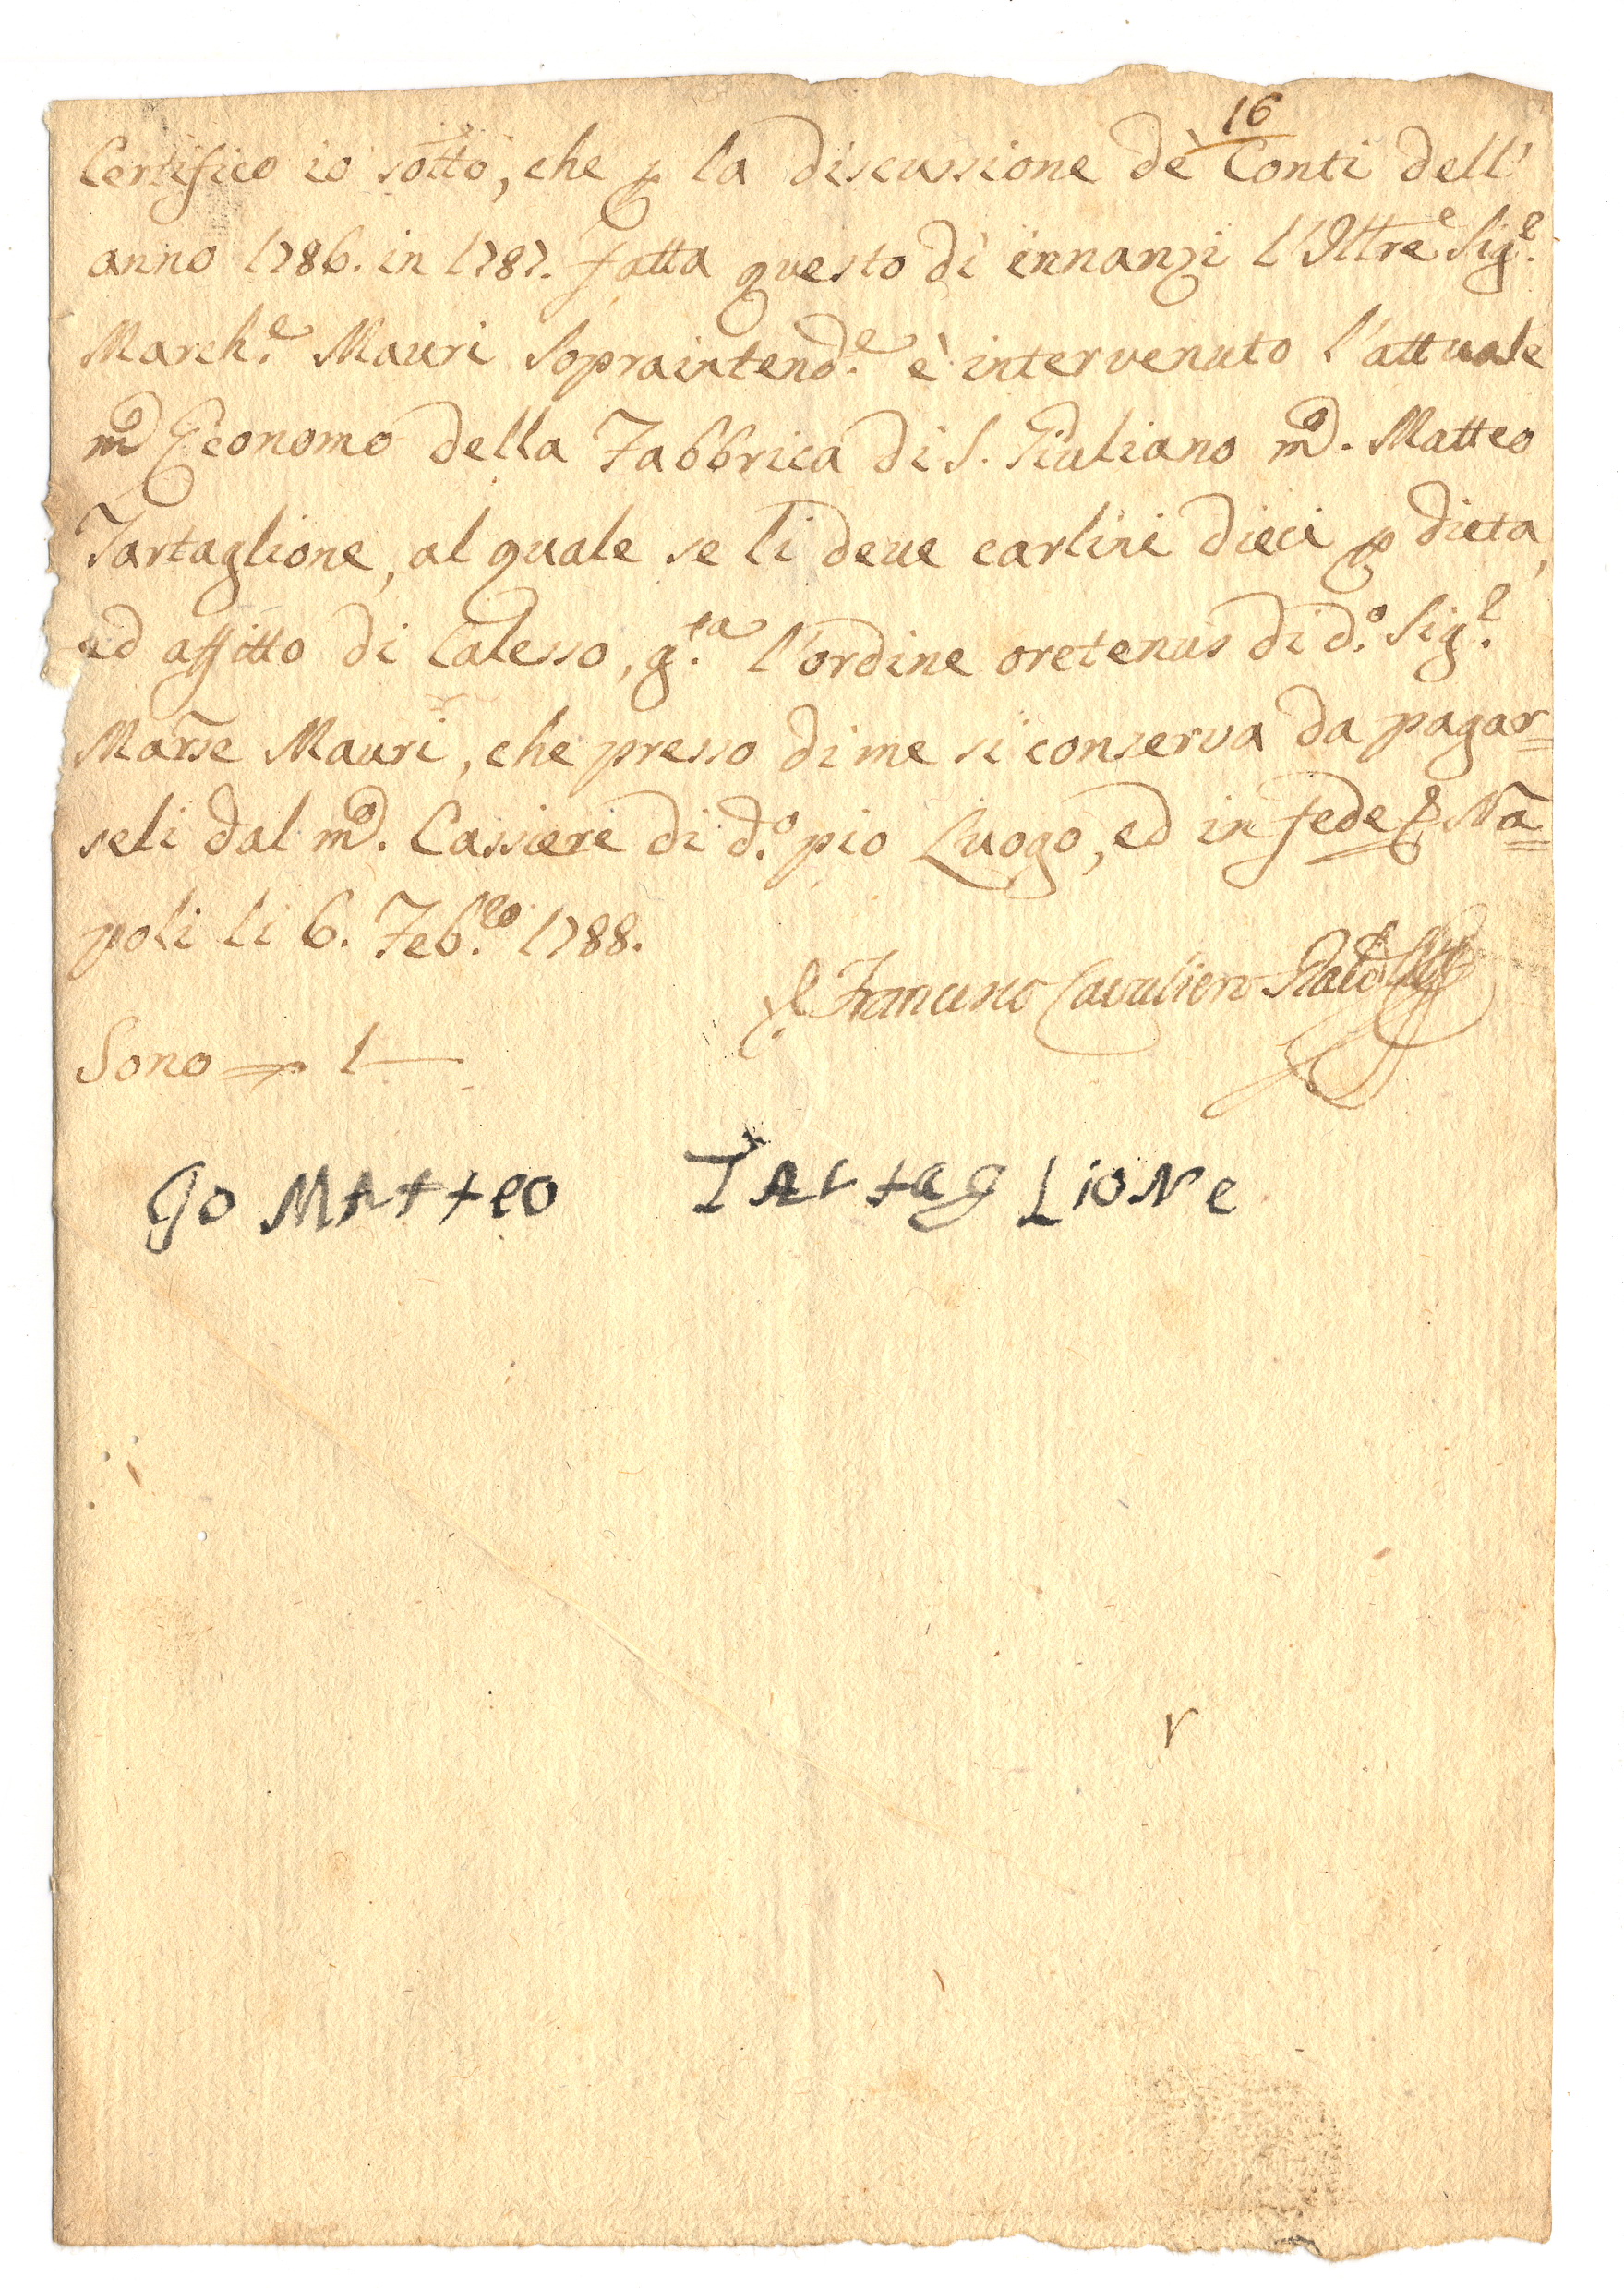 16
Certifico io sotto, che p la discussione de' Conti dell'
anno 1786. in 1787. fatta questo dì innanzi l'Illtre Sig.r
March.e Mauri Sopraintend.e è intervenuto l'attuale
mco Economo della Fabbrica di S. Giuliano mco. Matteo
Tartaglione, al quale se li deve carlini dieci p dieta,
ed affitto di Calesso, g.ta l'ordine oretenus di d.o Sig.r
Marse Mauri, che presso di me si conserva da pagar=
seli dal mco. Cassiere di d.o pio Luogo, ed in fede Na=
poli li 6. Feb.ro 1788.
Francesco Cavaliero
Sono 1
Io MAtteo TArtagLioNe